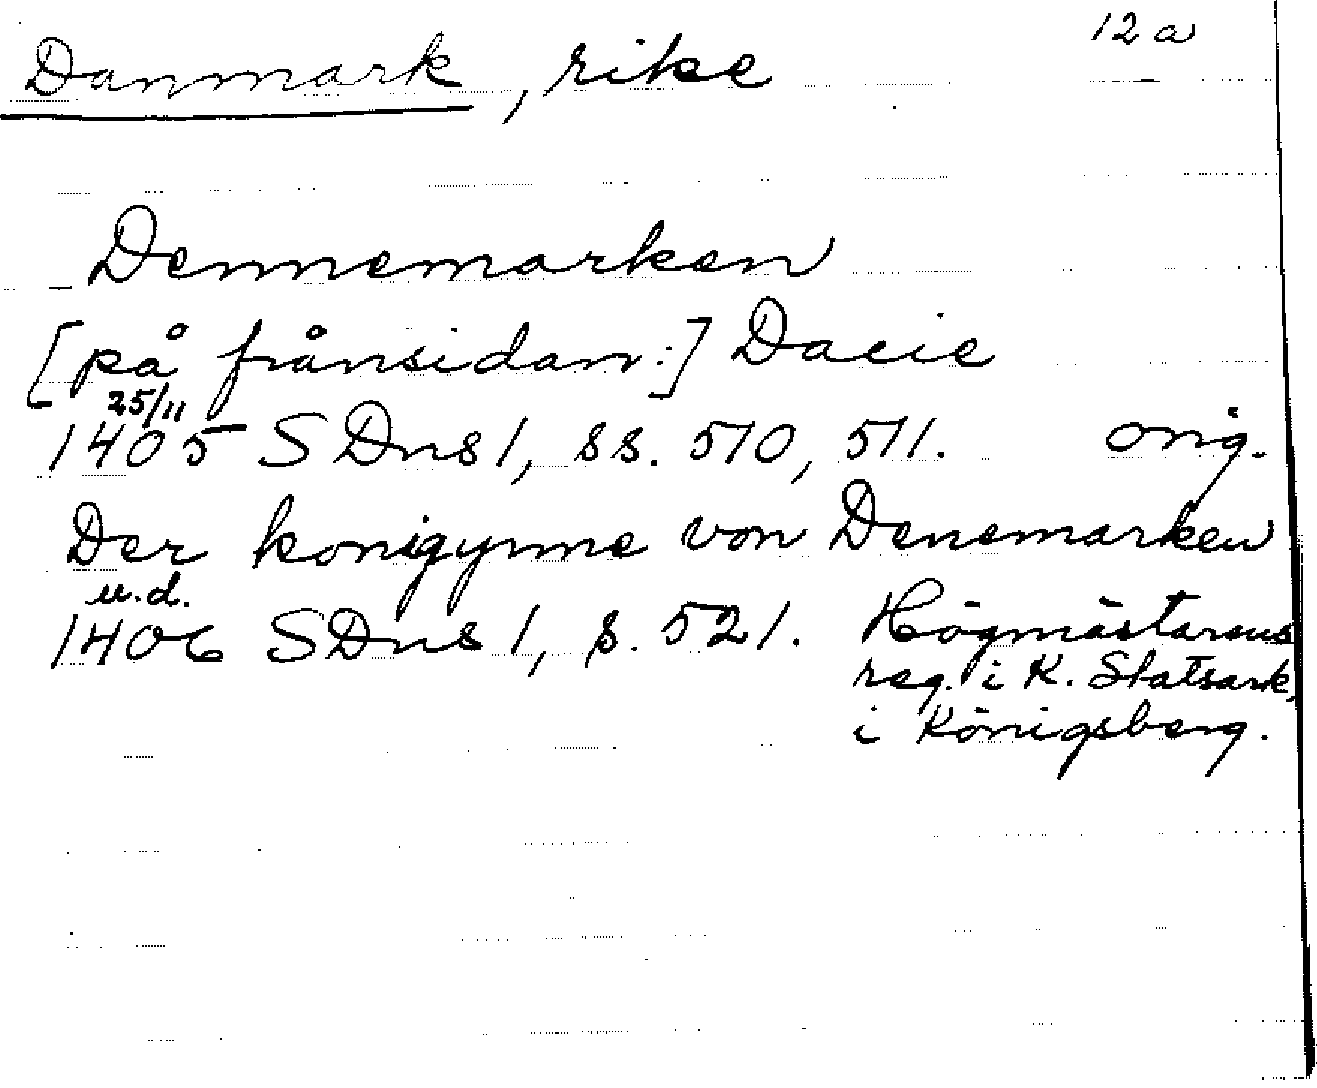 12 a
Danmark, rike
Dennemarken
[på frånsidan:] Dacie
25/11
1405 SDns 1, ss. 510, 511. orig.
Der konigynne von Denemarken
u.d.
1406 SDns 1, s. 521. Högmästarens
reg. i K. Statsark.
i Königsberg.